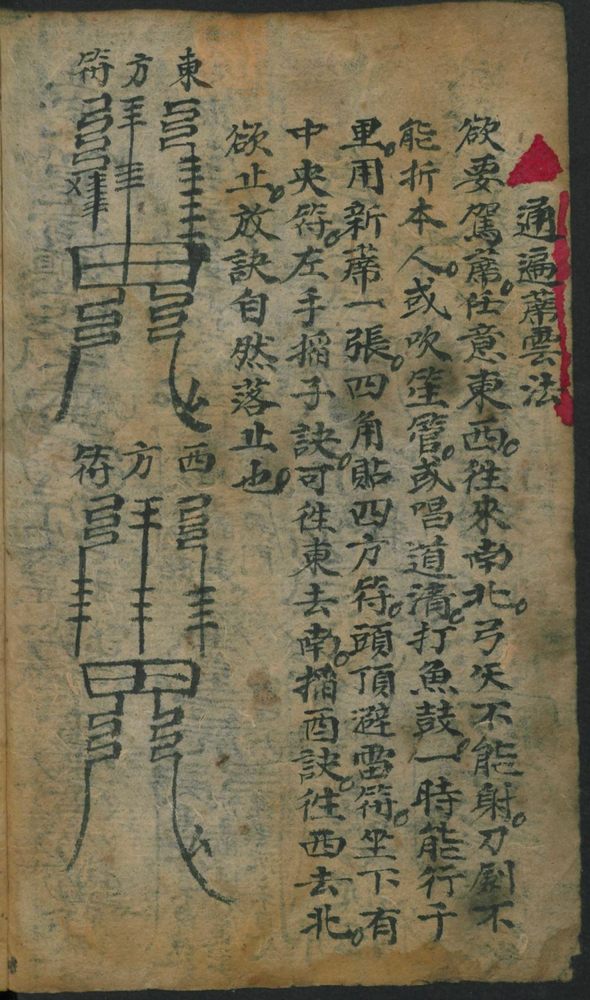 通遍蓆雲法
欲要駕蓆任意東西往來南北弓矢不能射刀劍不
能折本人或吹笙管或唱道清打魚鼓一時能行千
里用新蓆一張四角貼四方符頭頂避雷符坐下有
中央符左手搯子訣可往東去南搯酉訣往西去北
欲止放訣自然落止也
東方符
西方符